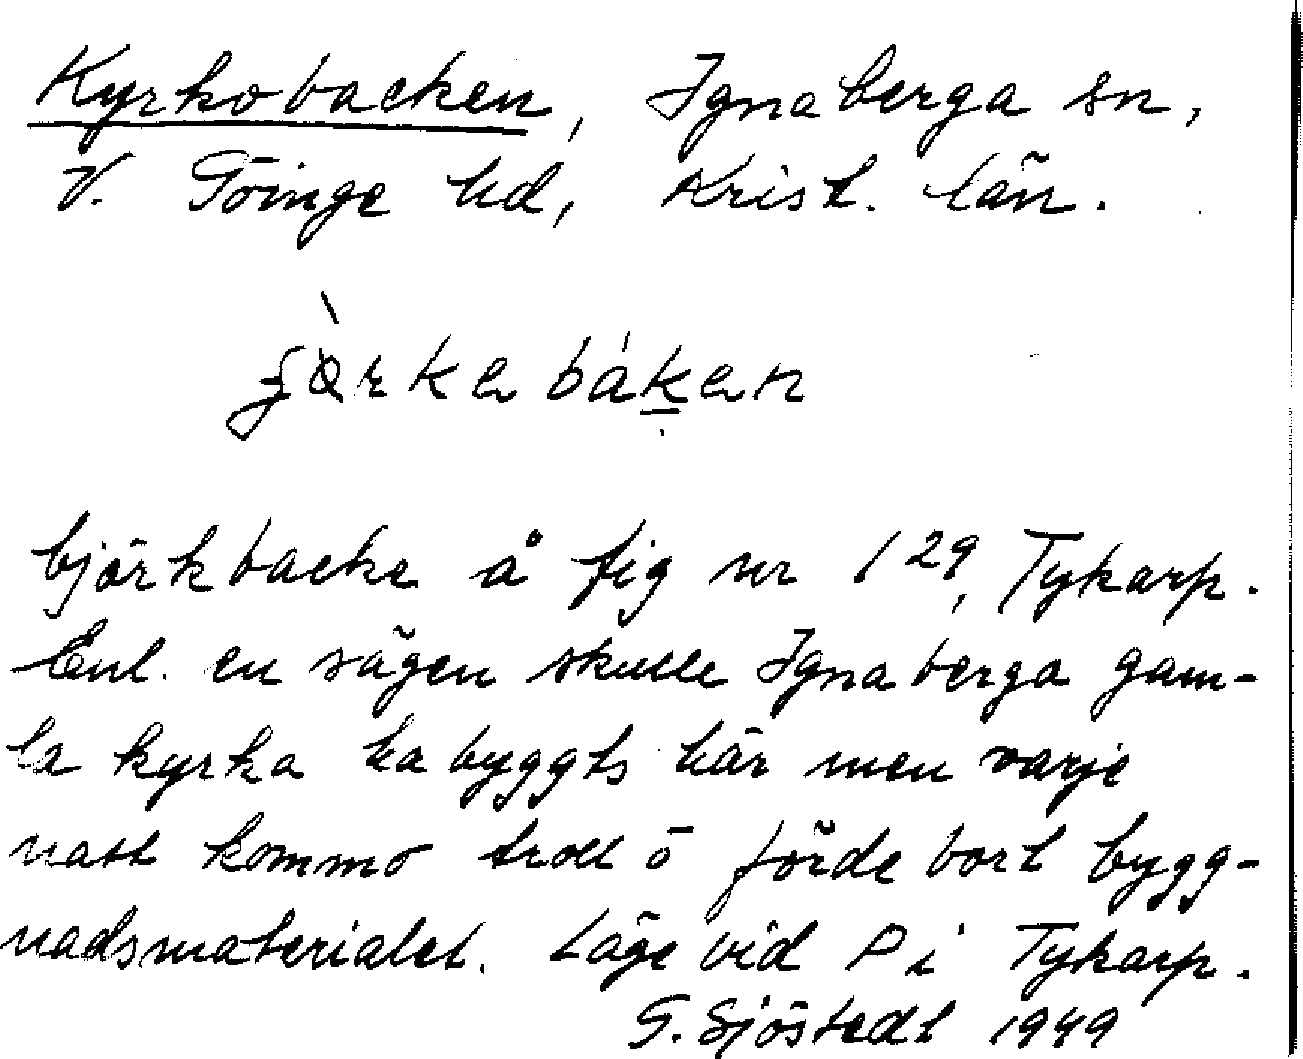 Kyrkobacken, Ignaberga sn,
V. Göinge hd, Krist. län.
björkbacke å fig nr 1 29, Tykarp.
Enl. en sägen skulle Ignaberga gam-
la kyrka ha byggts här men varje
natt kommo troll ō förde bort bygg-
nadsmaterialet. Läge vid P i Tykarp.
G. Sjöstedt 1949